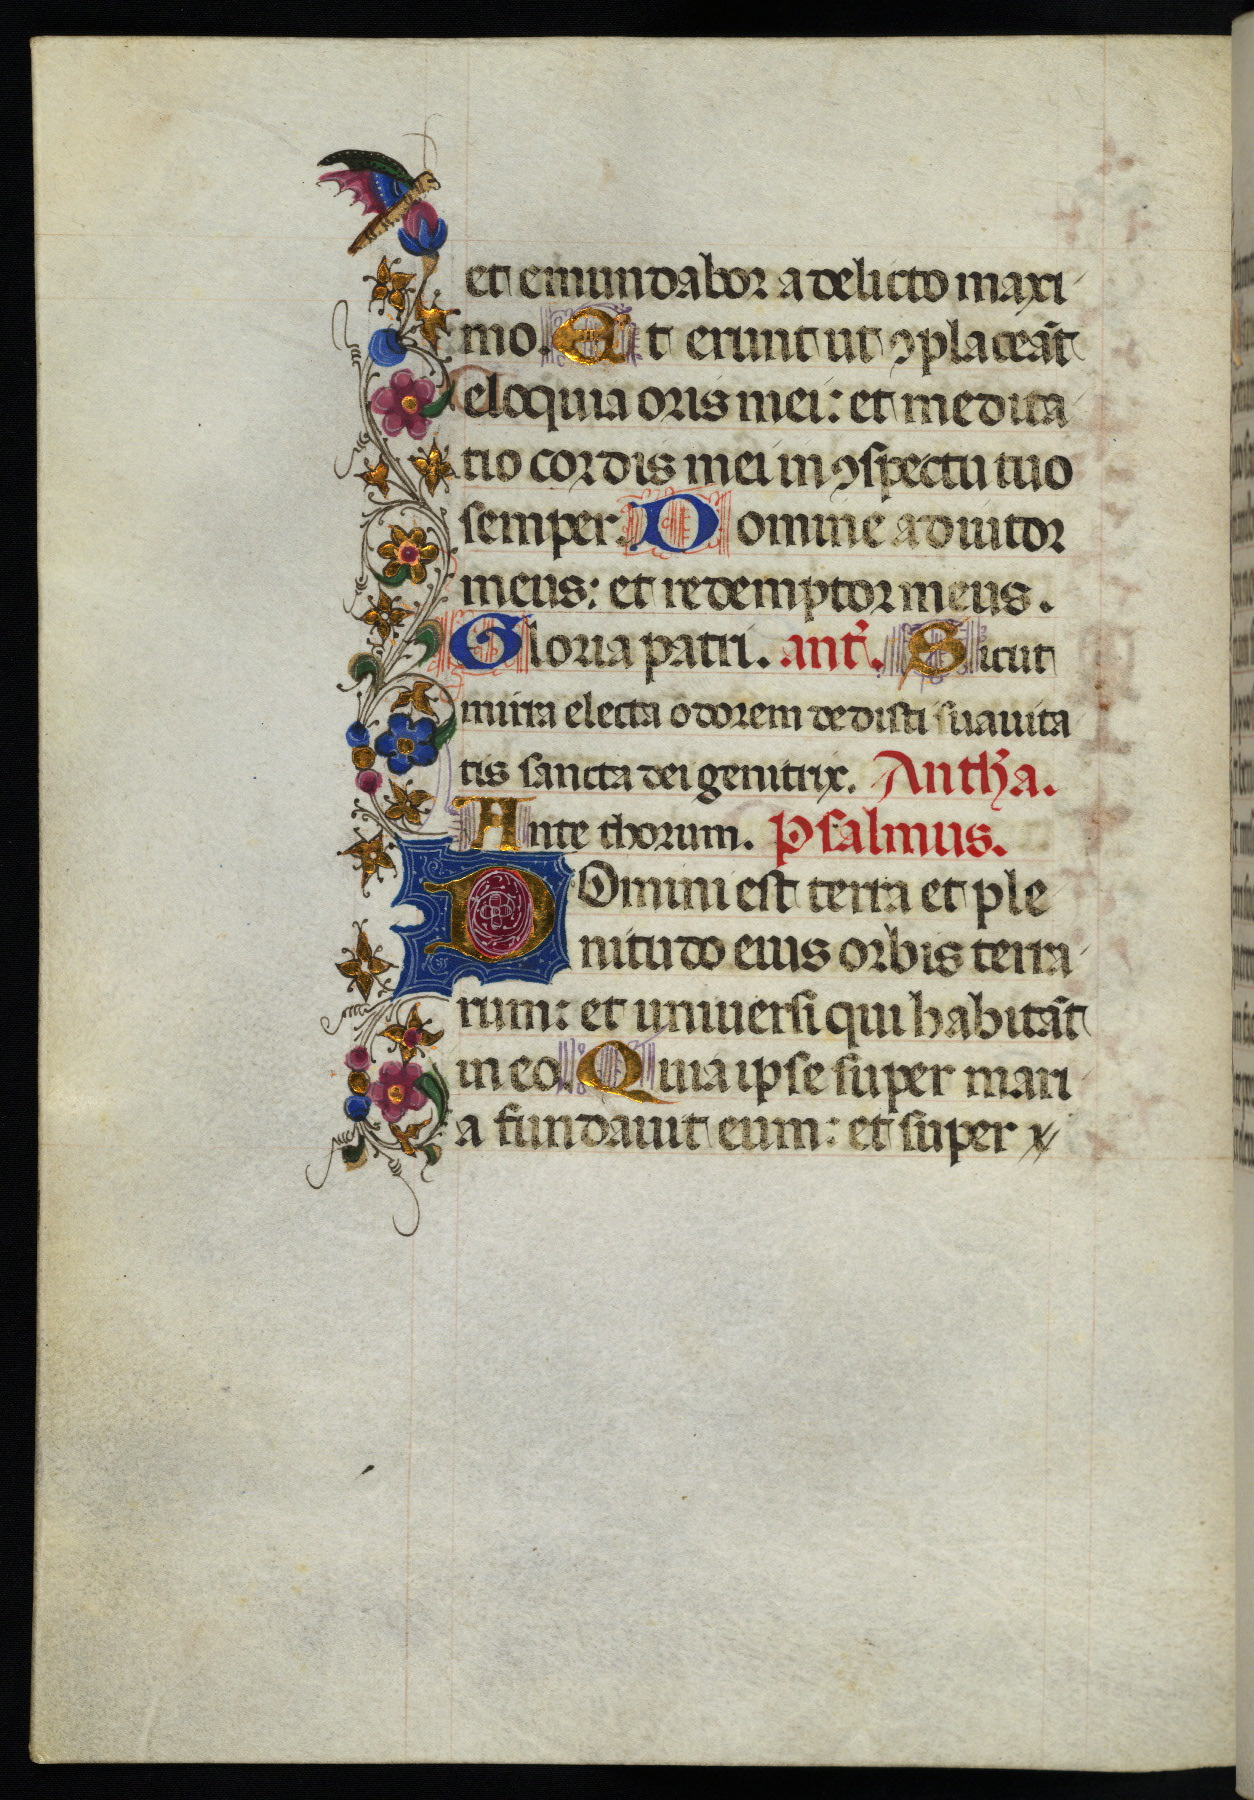 et emundabor a delicto maxi
mo. Et erunt ut ꝯplaceāt
eloquia oris mei: et medita
tio cordis mei in ꝯspectu tuo
semper. Domine adiutor
meus: et redemptor meus.
Gloria patri. ant̃. Sicut
mirra electa odorem dedisti suauita
tis sancta dei genitrix. Antħa.
Ante thorum. Psalmus.
Domini est terra et ple
nitudo eius orbis terra
rum: et uniuersi qui habitāt
in eo. Quia ipse super mari
a fundauit eum: et super